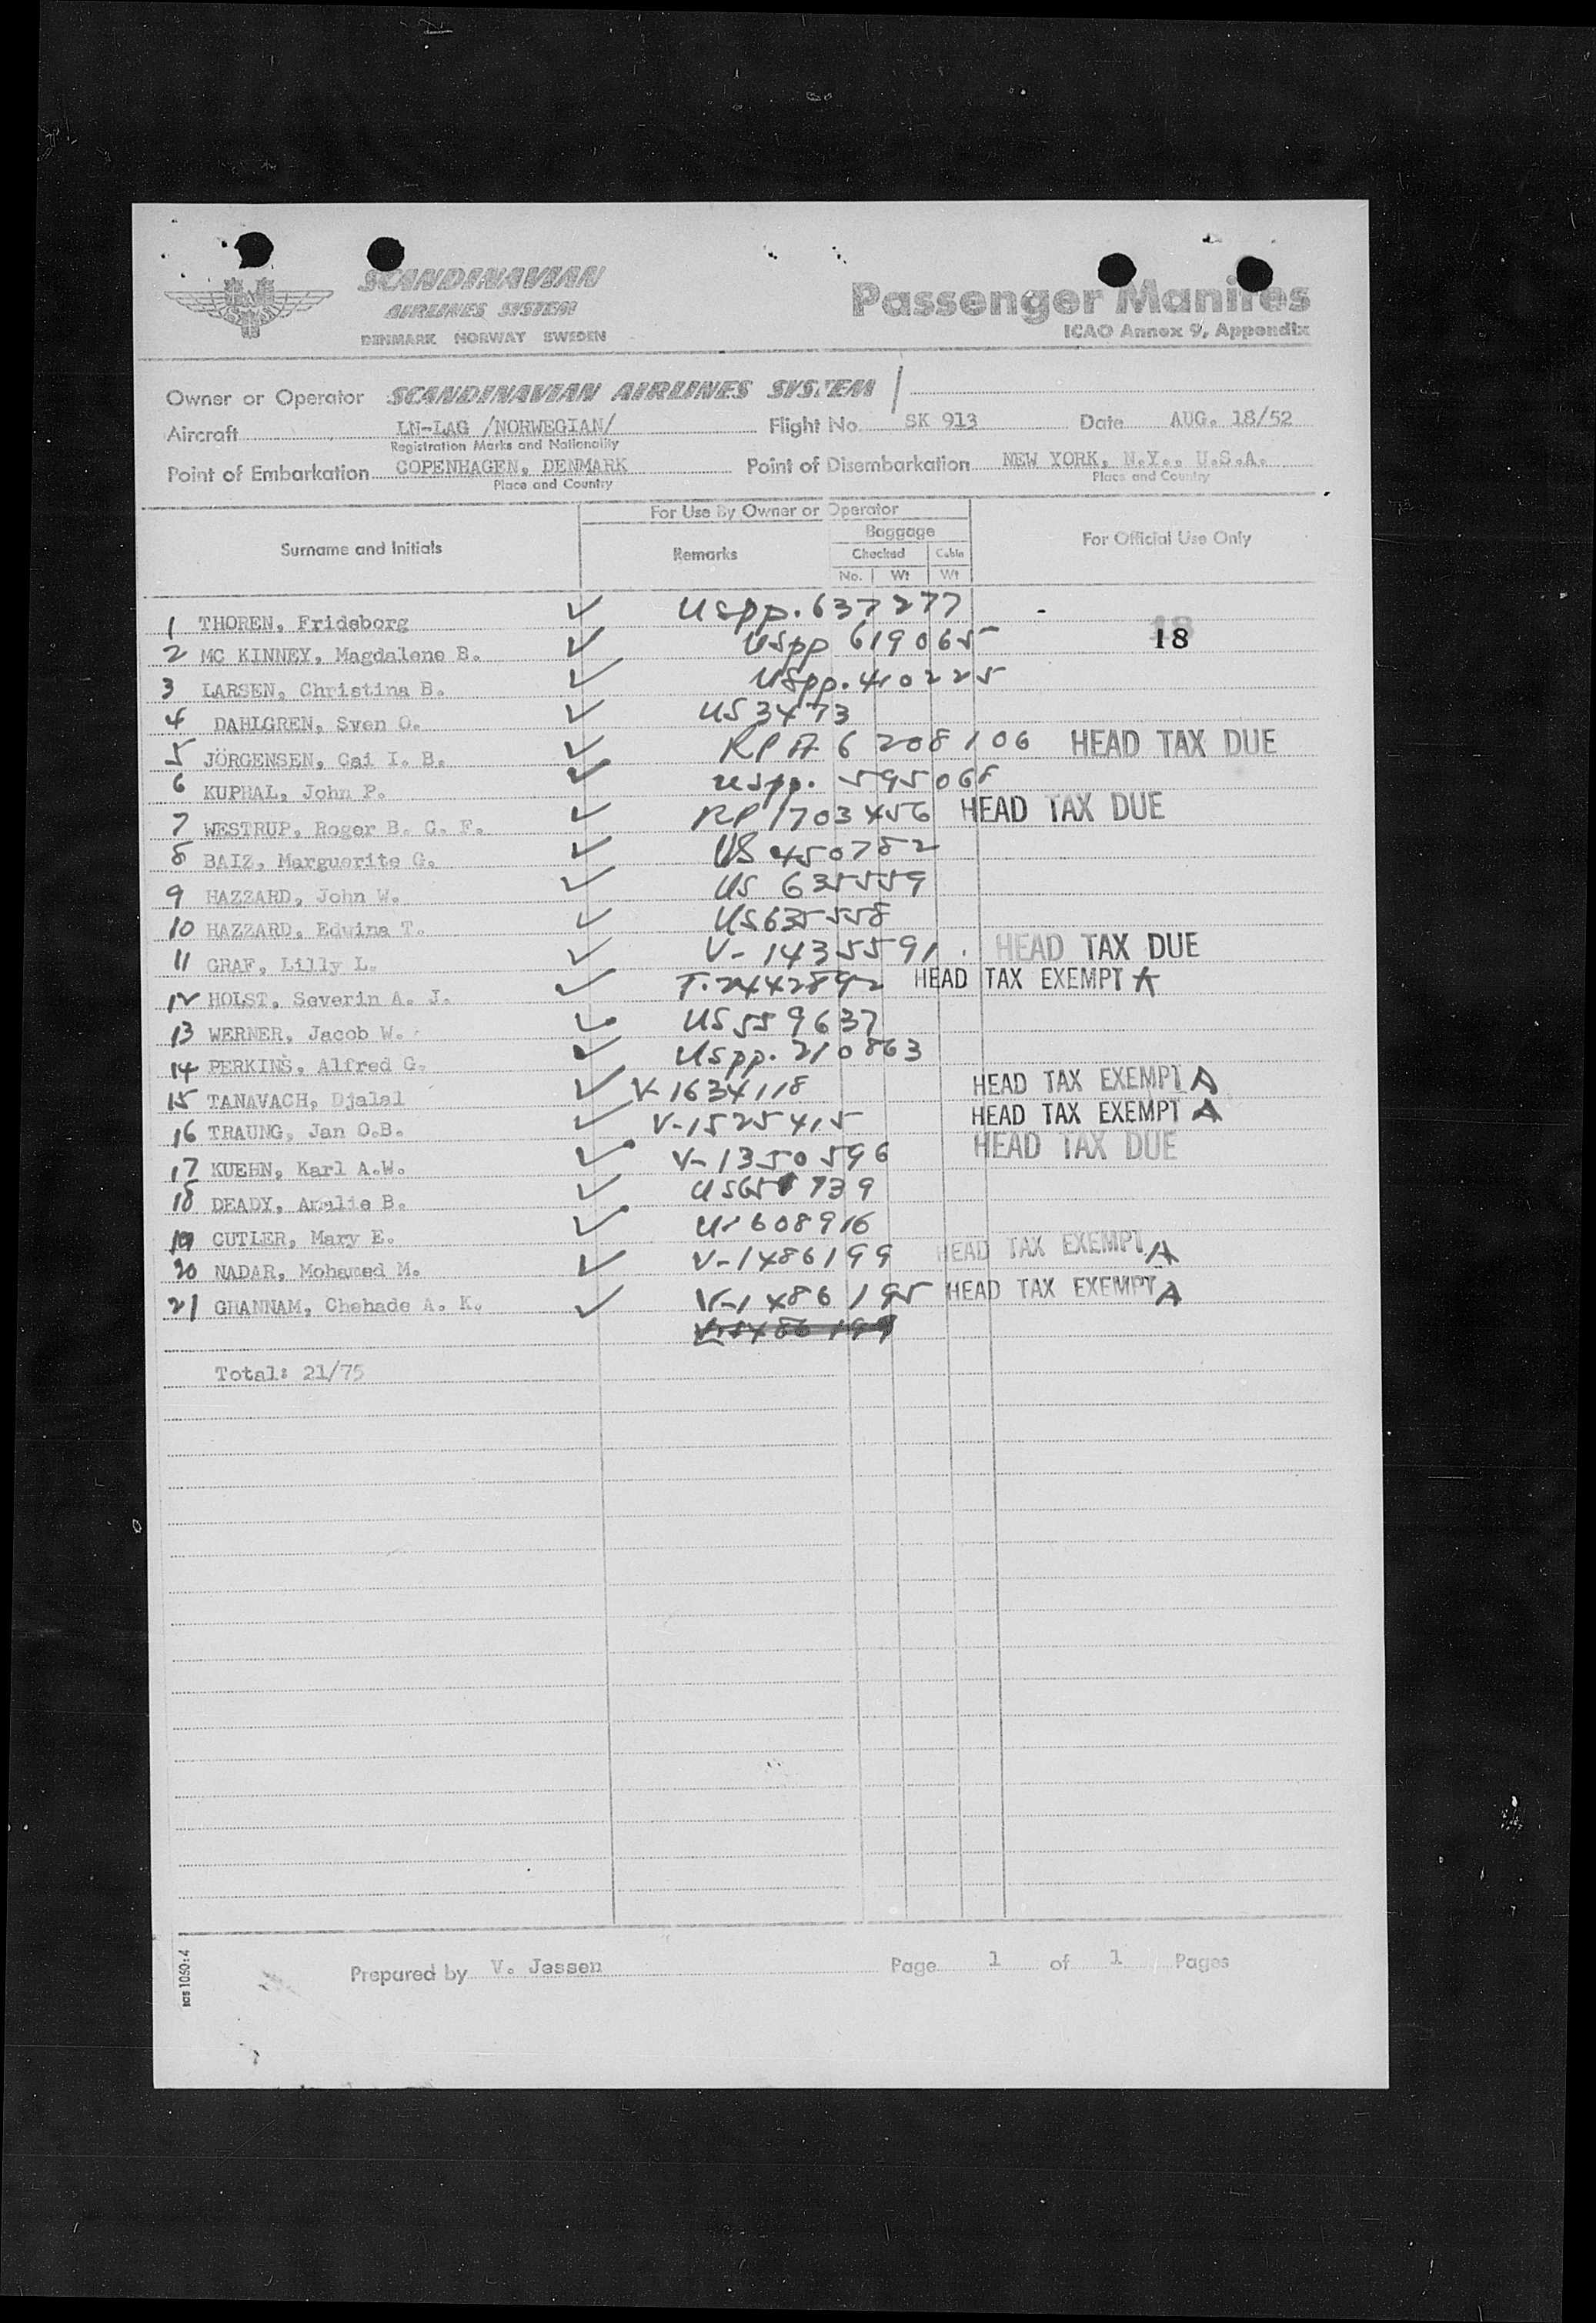 SCANDINAVIAN
AIRLINES SYSTEM
DENMARK NORWAY SWEDEN
Passenger Manifes
ICAO Annex 9, Appendix
Owner or Operator SCANDINAVIAN AIRLINES SYSTEM
Aircraft LN-LAG /NORWEGIAN/ Flight No. SK 913 Date AUG. 18/52
Registration Marks and Nationality
Point of Embarkation COPENHAGEN, DENMARK Point of Disembarkation NEW YORK, N.Y., U.S.A.
Place and Country Place and Country
For Use By Owner or Operator
Surname and Initials Remarks Baggage For Official Use Only
Checked Cabin
No. Wt Wt
1 THOREN, Frideborg ✓ USpp. 637277
18
2 MC KINNEY, Magdalene B. ✓ USpp 619065
3 LARSEN, Christina B. ✓ USpp. 410225
4 DAHLGREN, Sven O. ✓ US 3473
5 JÖRGENSEN, Cai I. B. ✓ RPA 6 208106 HEAD TAX DUE
6 KUPHAL, John P. ✓ USpp. 595068
7 WESTRUP, Roger B. C. F. ✓ RP 1703456 HEAD TAX DUE
8 BAIZ, Marguerite G. ✓ US 450782
9 HAZZARD, John W. ✓ US 635559
10 HAZZARD, Edwina T. ✓ US 635558
11 GRAF, Lilly L. ✓ V-1435591 HEAD TAX DUE
12 HOLST, Severin A. J. ✓ T.2442892 HEAD TAX EXEMPT A
13 WERNER, Jacob W. ✓ US 559637
14 PERKINS, Alfred G. ✓ USpp. 210863
15 TANAVACH, Djalal ✓ V-1634118 HEAD TAX EXEMPT A
16 TRAUNG, Jan O.B. ✓ V-1525415 HEAD TAX EXEMPT A
17 KUEHN, Karl A.W. ✓ V-1350596 HEAD TAX DUE
18 DEADY, Amalie B. ✓ US651739
19 CUTLER, Mary E. ✓ US 608916
20 NADAR, Mohamed M. ✓ V-1486199 HEAD TAX EXEMPT A
21 GHANNAM, Chehade A. K. ✓ V-1486195 HEAD TAX EXEMPT A
V-1486199
Total: 21/75
Prepared by V. Jessen Page 1 of 1 Pages